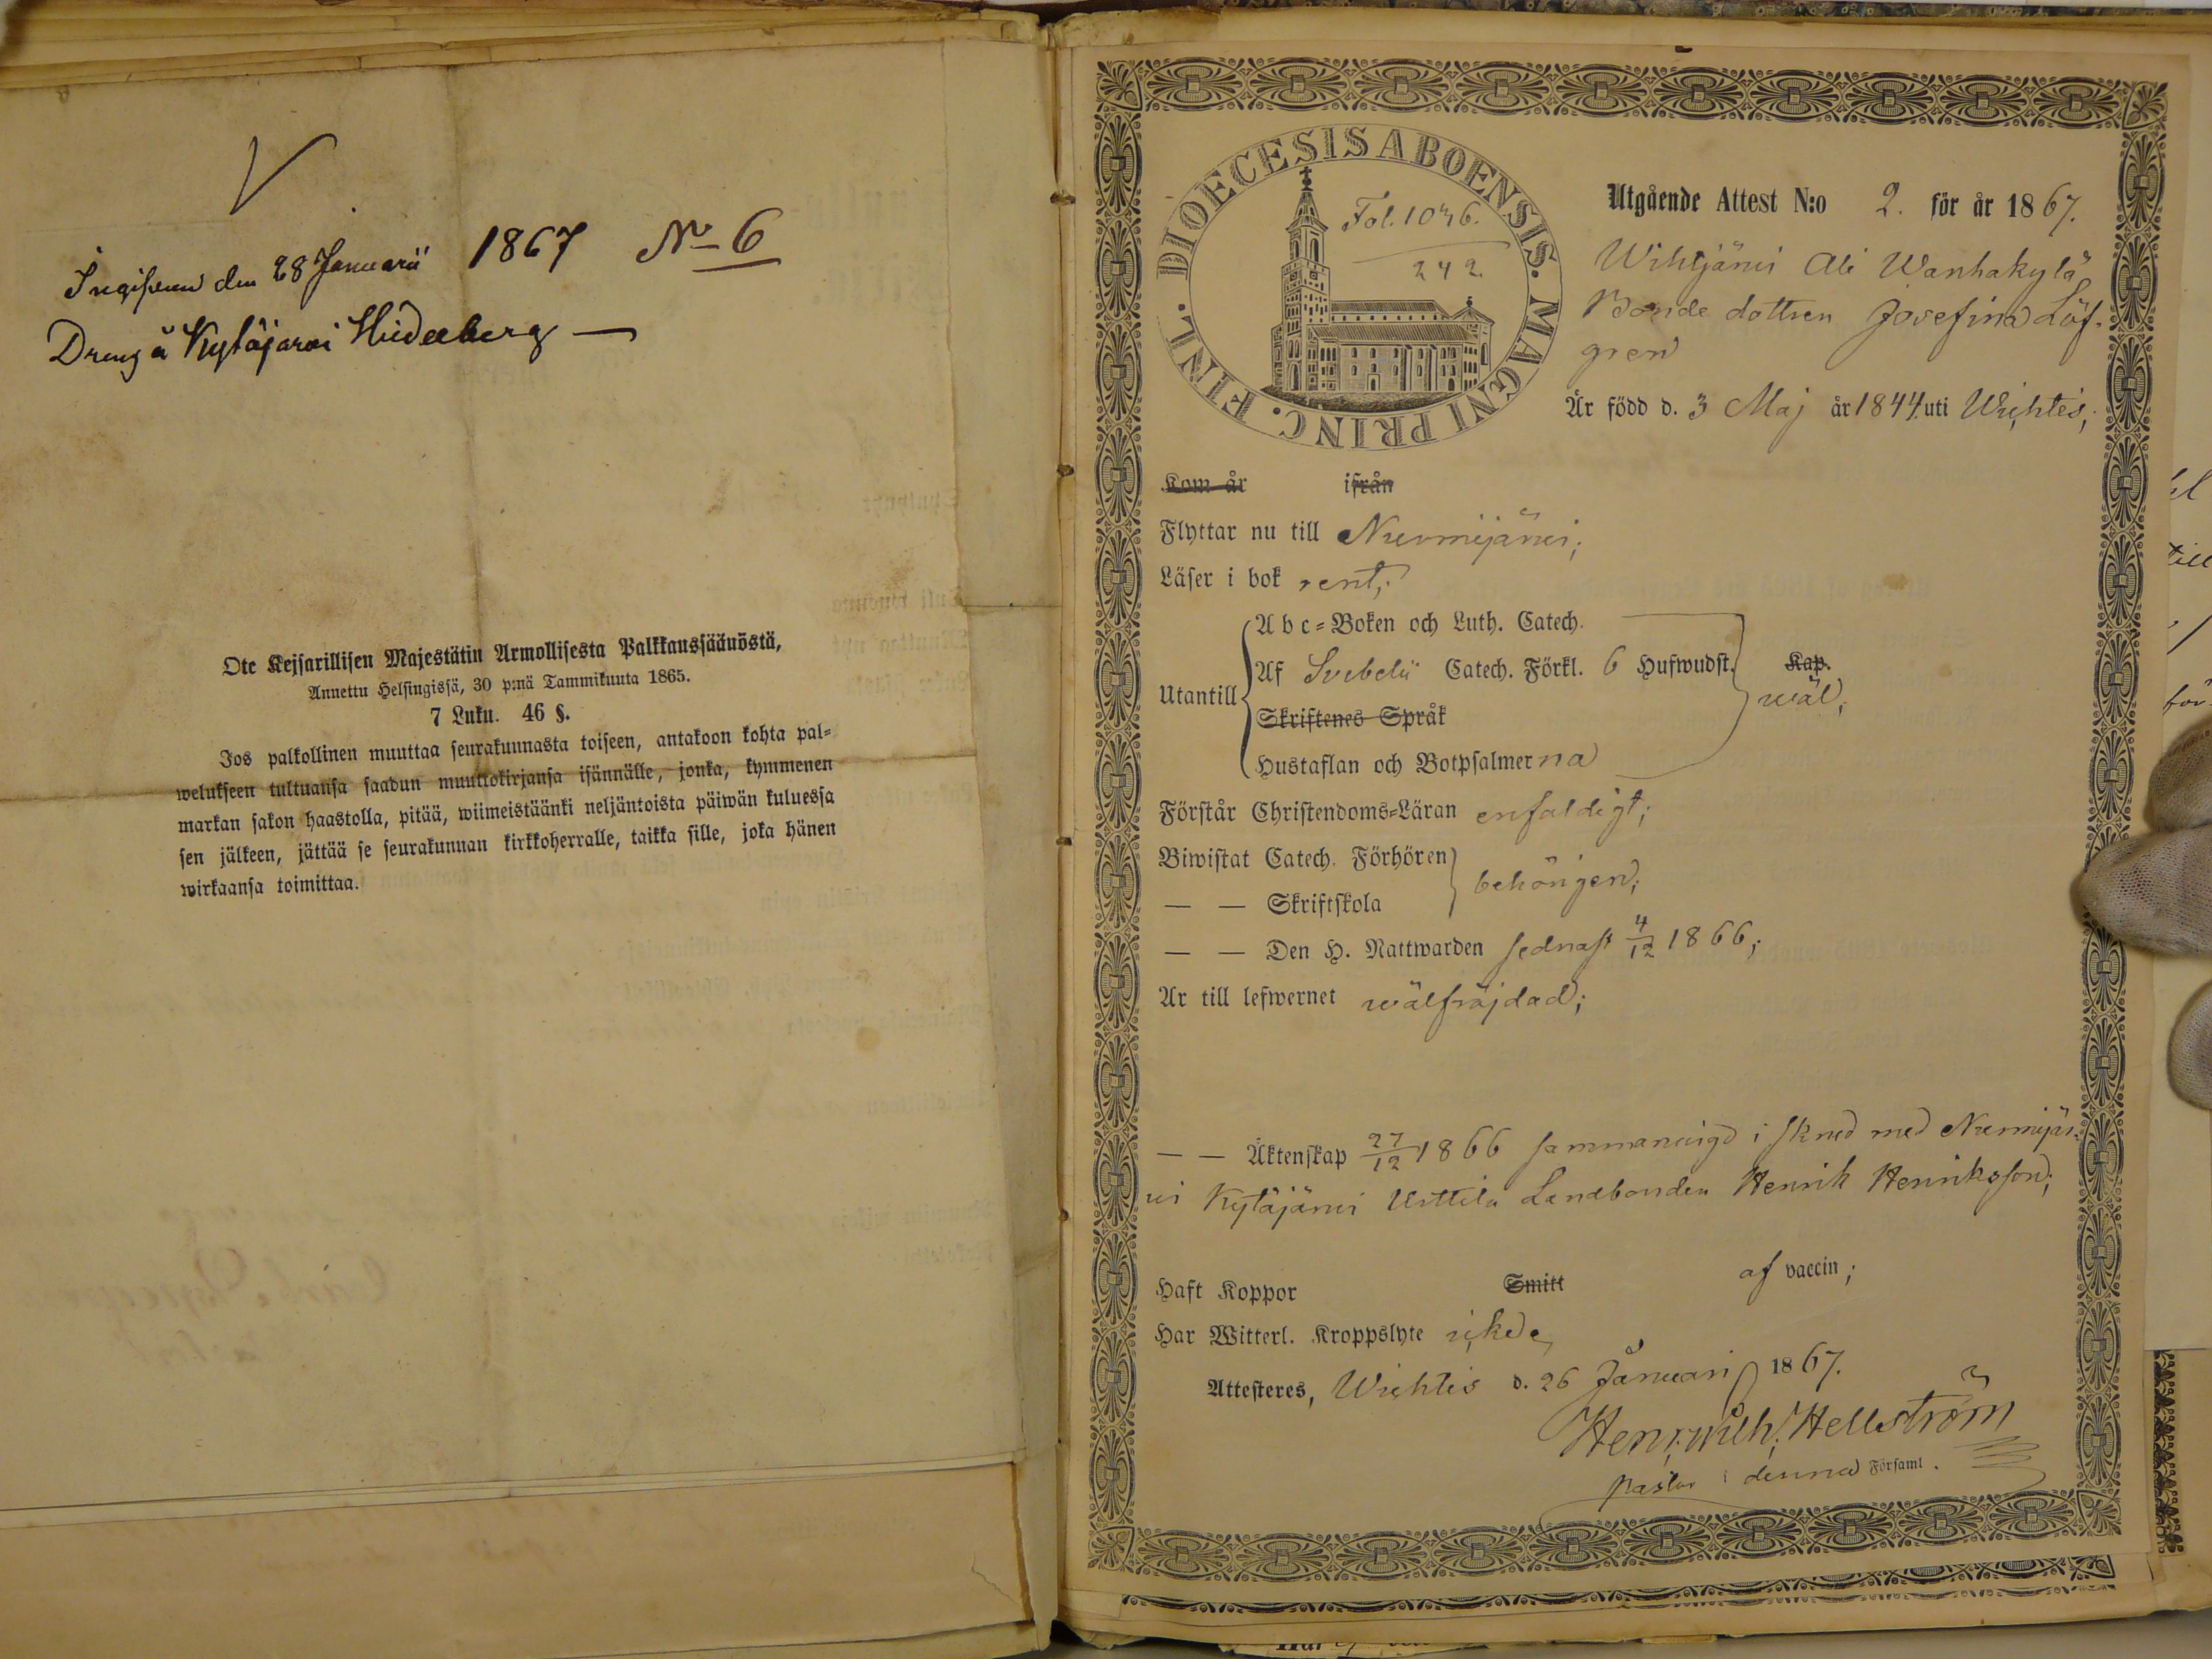 Ingifven den 28 Januarii 1867 No 6
Dreng å Kytäjärvi Hiideeberg —
Ote Keisarillisen Majestätin Armollisesta Palkkaussäännöstä,
Annettu Helsingissä, 30 p:nä Tammikuuta 1865.
7 Luku. 46 §.
Jos palkollinen muuttaa seurakunnasta toiseen, antakoon kohta pal=
welukseen tultuansa saadun muuttokirjansa isännälle, jonka, kymmenen
markan sakon haastolla, pitää, wiimeistäänki neljäntoista päiwän kuluessa
sen jälkeen, jättää se seurakunnan kirkkoherralle, taikka sille, joka hänen
wirkaansa toimittaa.
DIOECESIS ABOENSIS. MAGNI PRINC. FINL.
Fol. 1046.
242.
Utgående Attest N:o 2. för år 1867.
Wihtjärvi Ali Wanhakylä
Bonde dottren Josefina Löf-
gren
Är född d. 3 Maj år 1844 uti Wichtis;
Kom år ifrån
Flyttar nu till Nurmijärvi;
Läser i bok rent;
Abc=Boken och Luth. Catech.
Utantill Af Svebelii Catech. Förkl. 6 Hufwudst. Kap. wäl;
Skriftenes Språk
Hustaflan och Botpsalmerna
Förstår Christendoms=Läran enfaldigt;
Biwistat Catech. Förhören behörigen;
— — Skriftskola
— — Den H. Nattwarden sednast 4/12 1866;
Är till lefwernet wälfräjdad;
— — Äktenskap 27/12 1866 sammanvigd i Sknd med Nurmijär-
vi Kytäjärvi Urttila Landbonden Henrik Henriksson;
Haft Koppor Smitt af vaccin;
Har Witterl. Kroppslyte icke.
Attesteres, Wichtis d. 26 Januari 1867.
Henr. Wilh. Hellström
Pastor i denna Församl.